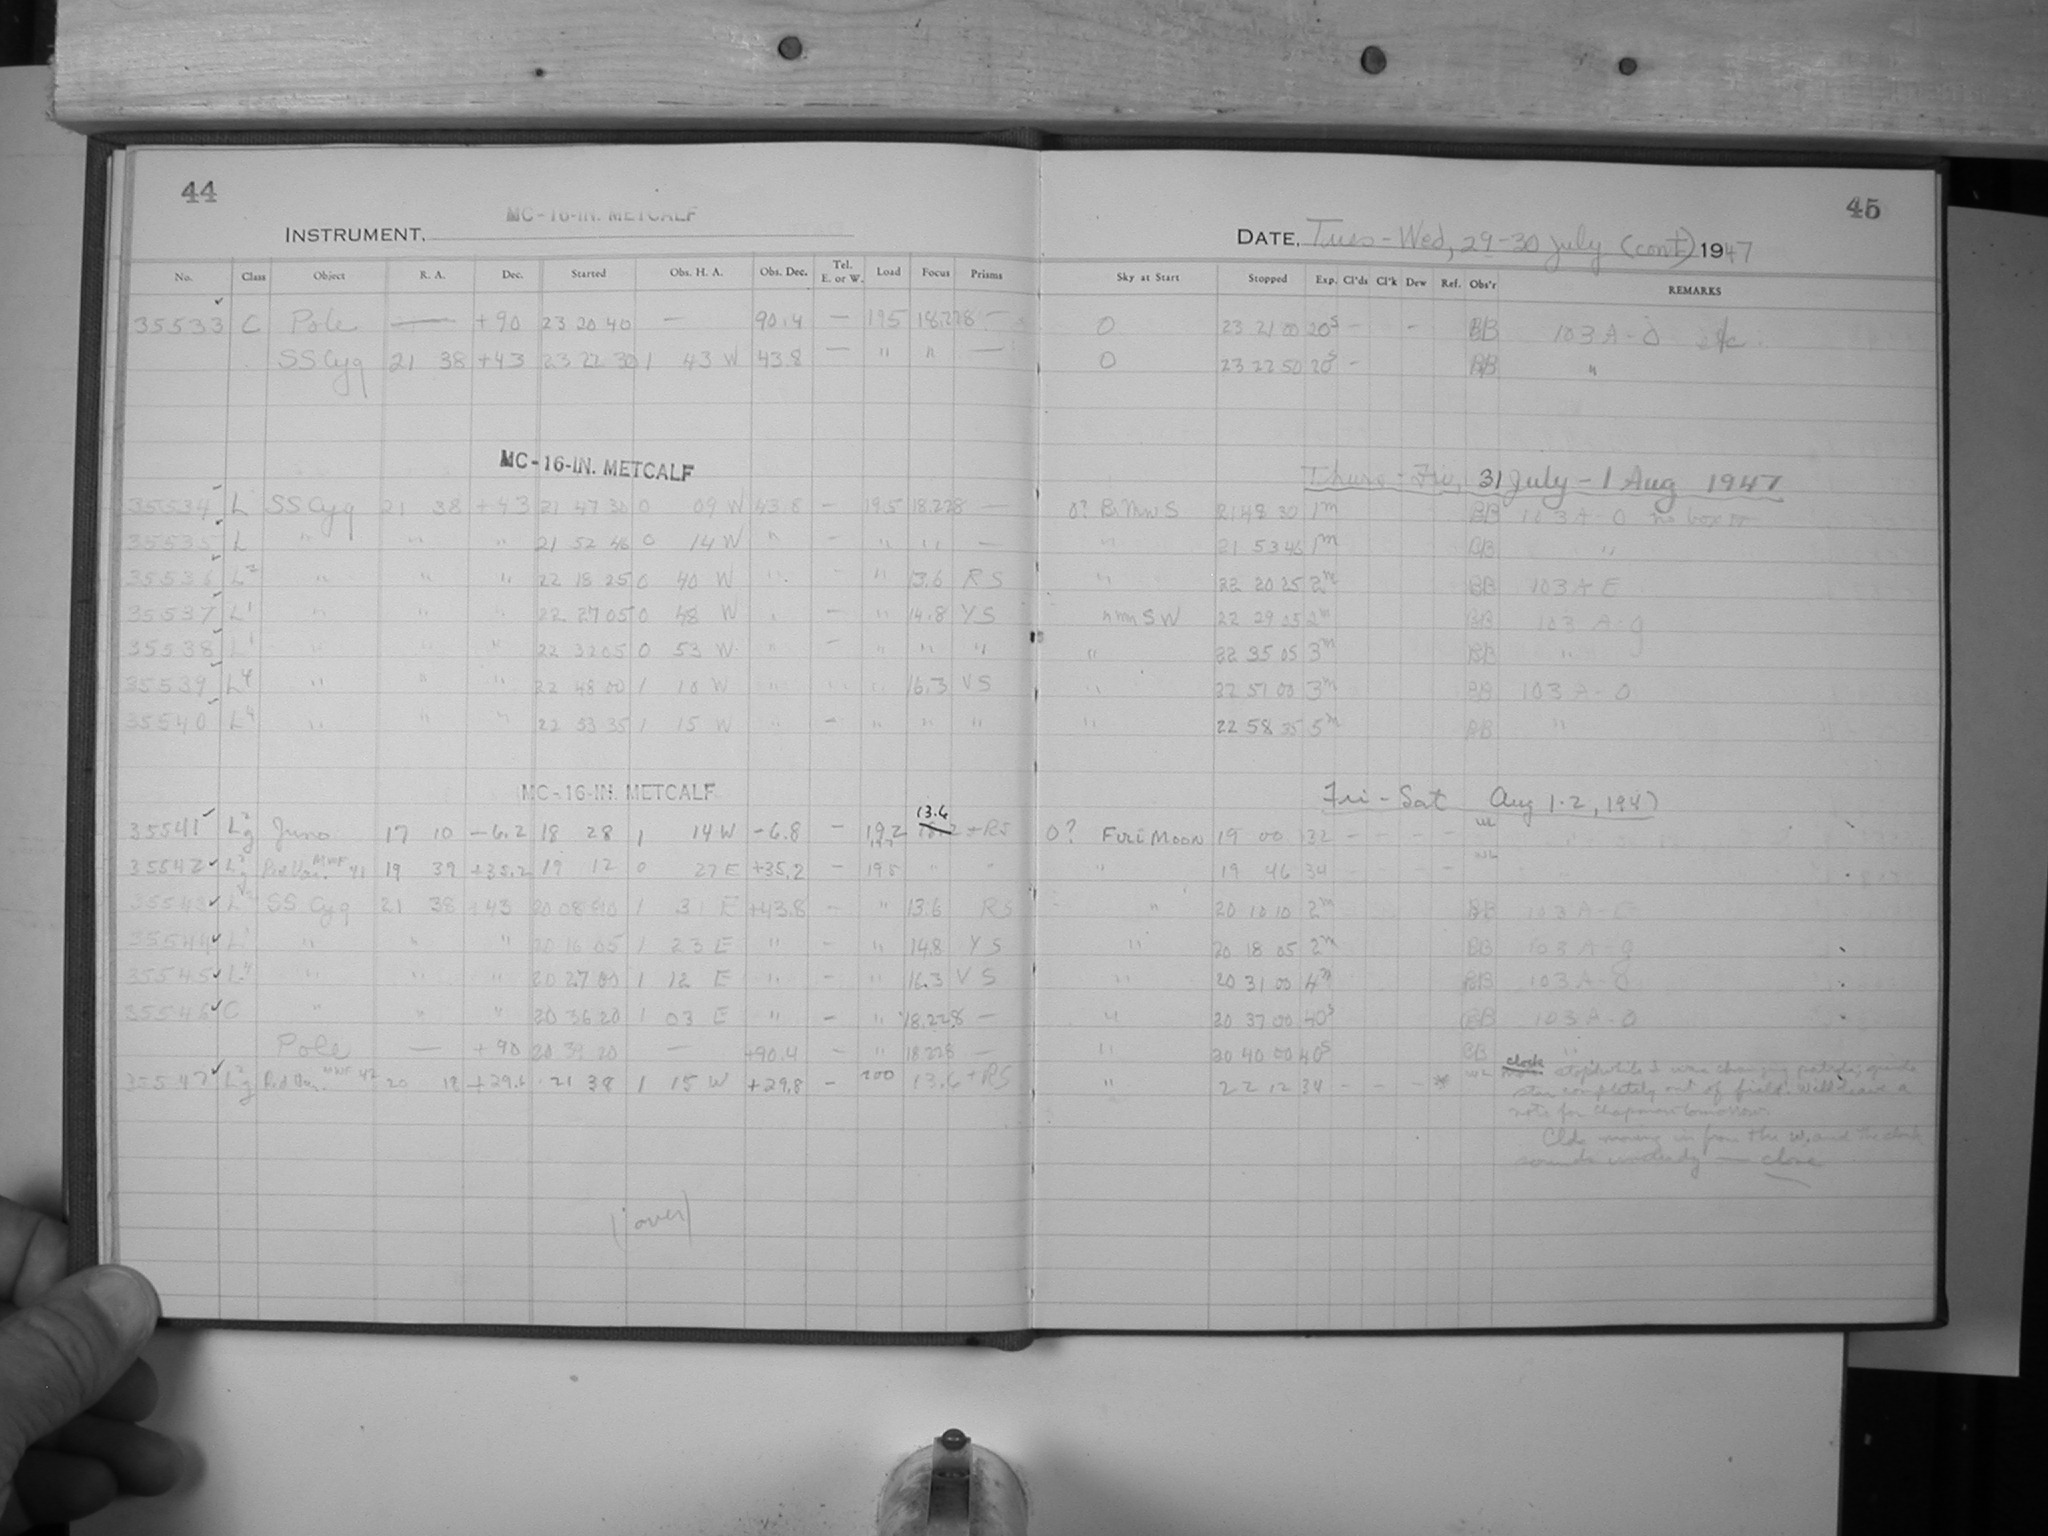 44
MC-16-IN. METCALF
INSTRUMENT,
No. Class Object R. A. Dec. Started Obs. H. A. Obs. Dec. Tel. E. or W. Load Focus Prisms
35533 C Pole — +90 23 20 40 — 90.4 — 195 18.228 —
SS Cyg 21 38 +43 23 22 30 1 43 W 43.8 — " " —
MC-16-IN. METCALF
35534 L SS Cyg 21 38 +43 21 47 30 0 09 W 43.8 — 19.5 18.228 —
35535 L " " " 21 52 46 0 14 W " — " " —
35536 L2 " " " 22 18 25 0 40 W " " 13.6 RS
35537 L1 " " " 22 27 05 0 48 W " — " 14.8 YS
35538 L1 " " " 22 32 05 0 53 W " — " " "
35539 L4 " " " 22 48 00 1 10 W " " 16.3 VS
35540 L4 " " " 22 53 35 1 15 W " — " " "
MC-16-IN. METCALF
35541 L2g Juno 17 10 -6.2 18 28 1 14 W -6.8 — 192 13.6 +RS
35542 L2g Red Var. MWF 41 19 39 +35.2 19 12 0 27 E +35.2 — 195 " "
35543 L SS Cyg 21 38 +43 20 08 10 1 31 E +43.8 — " 13.6 RS
35544 L1 " " " 20 16 05 1 23 E " — " 14.8 YS
35545 L4 " " " 20 27 00 1 12 E " — " 16.3 VS
35546 C " " " 20 36 20 1 03 E " — " 18.228 —
Pole — +90 20 39 20 — +90.4 — " 18.228 —
35547 L2g Red Var. MWF 42 20 18 +29.6 21 38 1 15 W +29.8 — 200 13.6 +RS
(over)
45
DATE, Tues-Wed, 29-30 July (cont) 1947
Sky at Start Stopped Exp. Cl'ds Cl'k Dew Ref. Obs'r REMARKS
0 23 21 00 20s — — BB 103 A-O
0 23 22 50 20s — BB "
Thurs-Fri, 31 July-1 Aug 1947
0? 21 48 30 1m BB 103 A-O
" 21 53 46 1m BB "
" 22 20 25 2m BB 103 A E
22 29 05 2m BB 103 A-g
" 22 35 05 3m BB "
" 22 51 00 3m BB 103 A-O
" 22 58 35 5m BB "
Fri-Sat Aug 1-2, 1947
0? Full Moon 19 00 32 — — — — WL
" 19 46 34 — — — — WL
" 20 10 10 2m BB 103 A-E
" 20 18 05 2m BB 103 A-g
" 20 31 00 4m BB 103 A-O
" 20 37 00 40s BB 103 A-O
" 20 40 00 40s BB "
" 22 12 34 — — — * WL clock stop'd while I was changing patrols; guide
star completely out of field. Will leave a
note for Chapman tomorrow.
Clds moving in from the W, and the clock
sounds unsteady — close